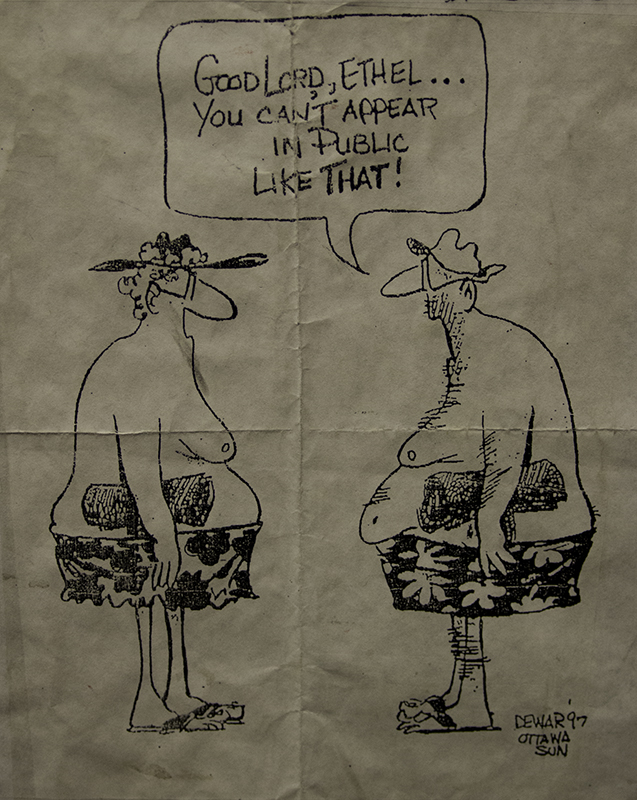 GOOD LORD, ETHEL...
YOU CAN'T APPEAR
IN PUBLIC
LIKE THAT!
DEWAR '97
OTTAWA
SUN